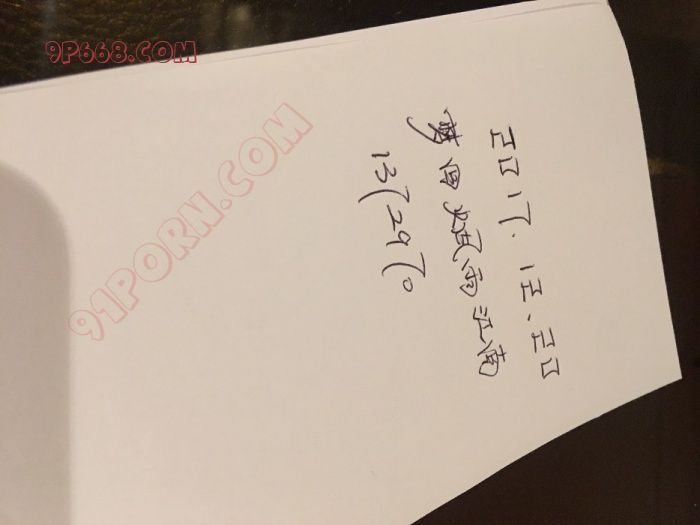 9P668.COM
91PORN.COM
2017.12.20
梦回烟雨江南
1372970